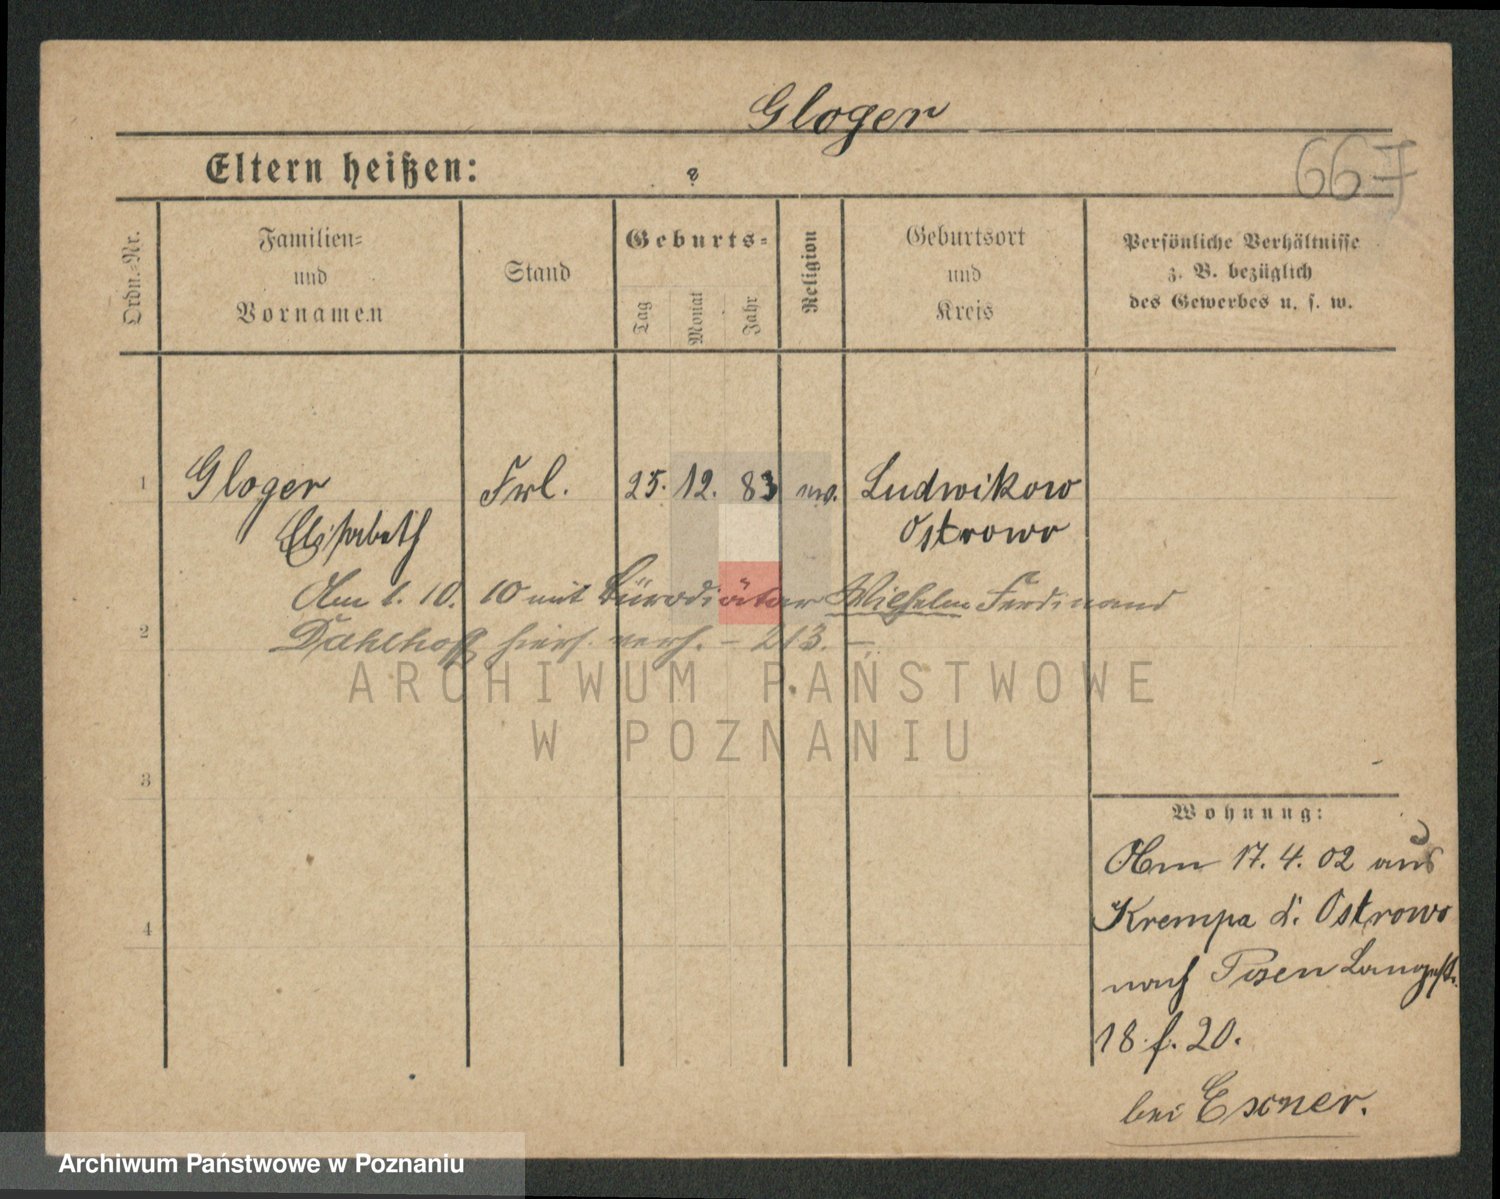 Gloger
667
Eltern heißen: ?
Ordn.-Nr.
Familien-
und
Vornamen
Stand
Geburts-
Tag
Monat
Jahr
Religion
Geburtsort
und
Kreis
Persönliche Verhältnisse
z. B. bezüglich
des Gewerbes u. s. w.
1 Gloger Frl. 25. 12. 83 Ludwikow
Elisabeth Ostrowo
Am 1. 10. 10 mit Bürodiätar Wilhelm Ferdinand
2
Dahlhoff hier verh. – 213. –
ARCHIWUM PAŃSTWOWE
W POZNANIU
3
4
Wohnung:
Am 17. 4. 02 aus
Krempa d. Ostrowo
nach Posen Langestr.
18 f. 20.
bei Exner.
Archiwum Państwowe w Poznaniu